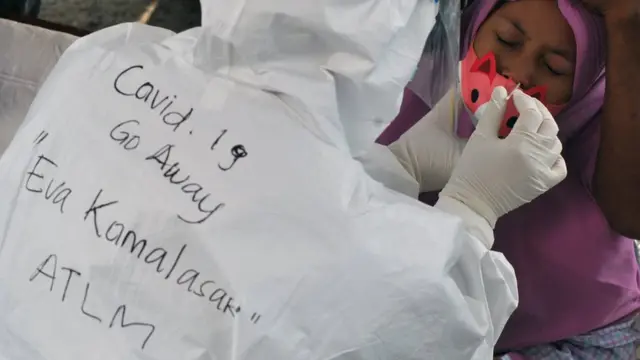 Covid.19
Go Away
"Eva Kamalasari"
ATLM